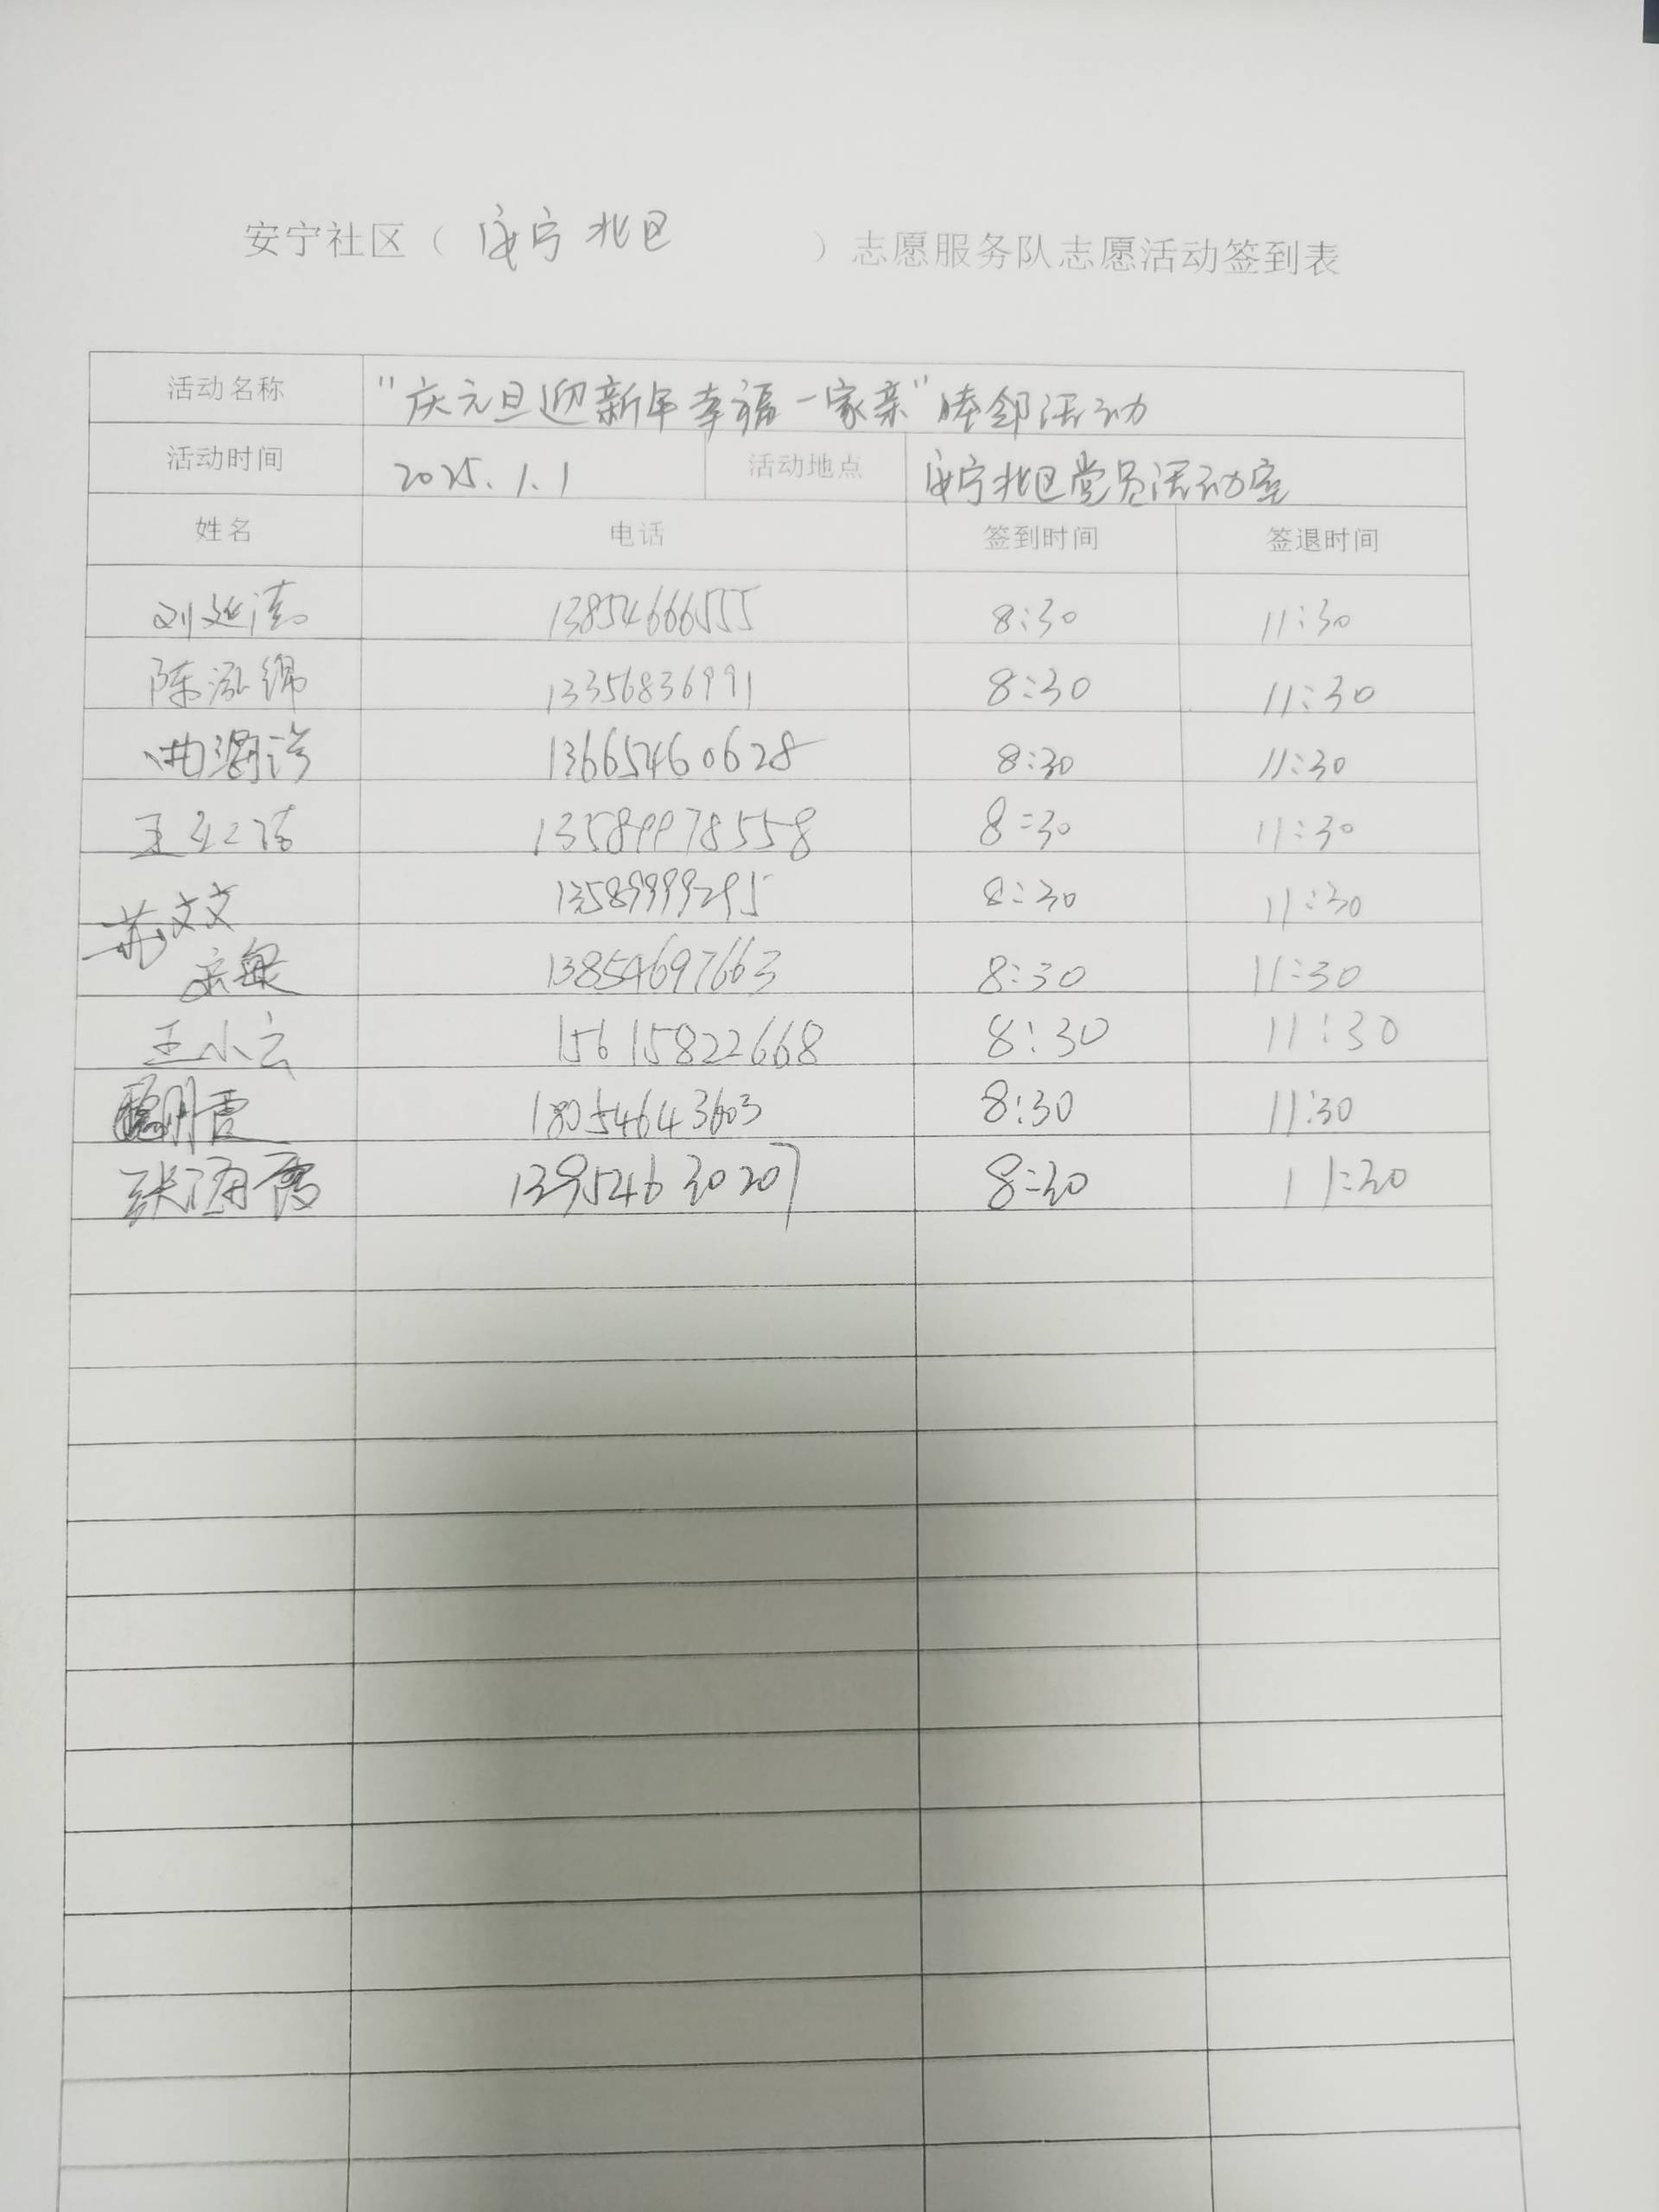 安宁社区（ 安宁北区 ）志愿服务队志愿活动签到表
活动名称 "庆元旦迎新年幸福一家亲"睦邻活动
活动时间 2025.1.1 活动地点 安宁北区党员活动室
姓名 电话 签到时间 签退时间
13854666555 8:30 11:30
陈泓锦 13356836991 8:30 11:30
13665460628 8:30 11:30
13589978558 8:30 11:30
苏文文 13589999295 8:30 11:30
13854697663 8:30 11:30
王小云 15615822668 8:30 11:30
18054643603 8:30 11:30
张海霞 13954630207 8:30 11:30